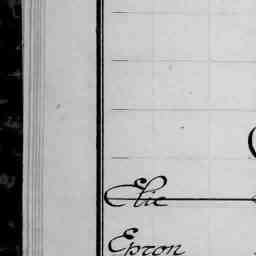 Elie
Epron